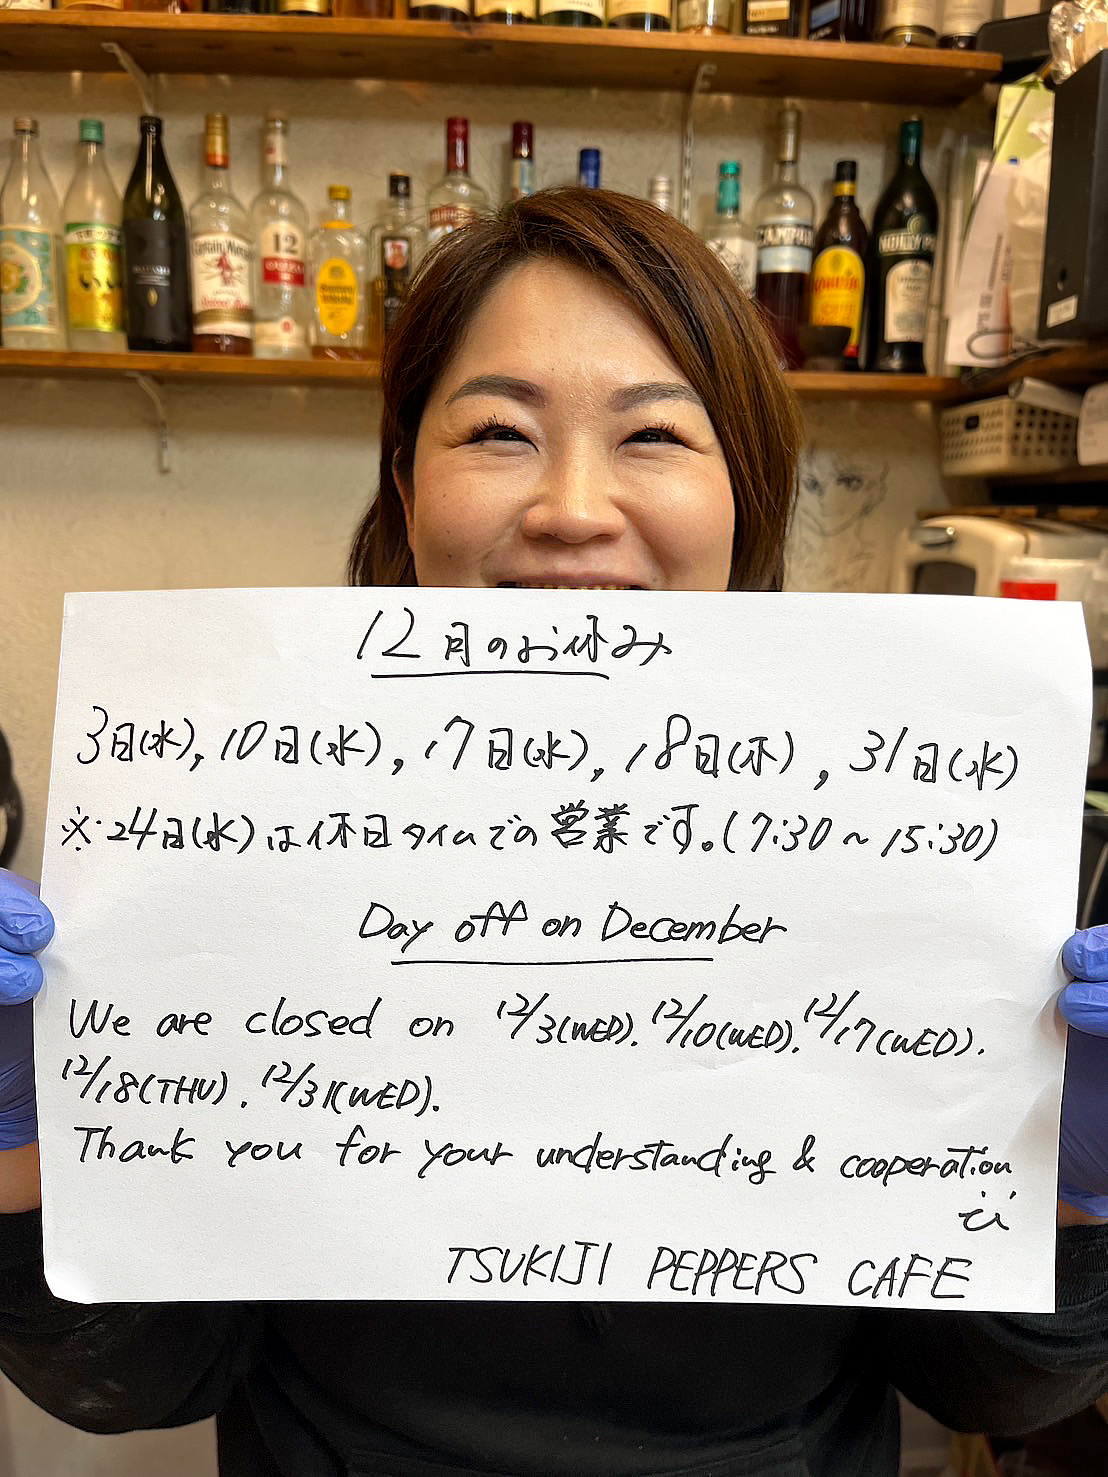 12月のお休み
3日(水), 10日(水), 17日(水), 18日(木), 31日(水)
※24日(水)は休日タイムでの営業です。(7:30~15:30)
Day off on December
We are closed on 12/3(WED). 12/10(WED). 12/17(WED).
12/18(THU). 12/31(WED).
Thank you for your understanding & cooperation
TSUKIJI PEPPERS CAFE
12
CAMPARI
NOILLY PR